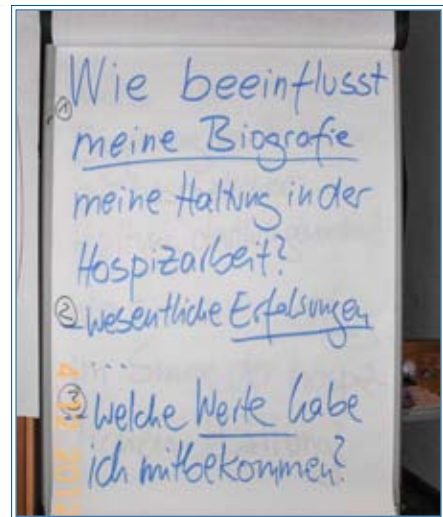 Wie beeinflusst
① meine Biografie
meine Haltung in der
Hospizarbeit?
② - wesentliche Erfahrungen
...
③ - welche Werte habe
ich mitbekommen?